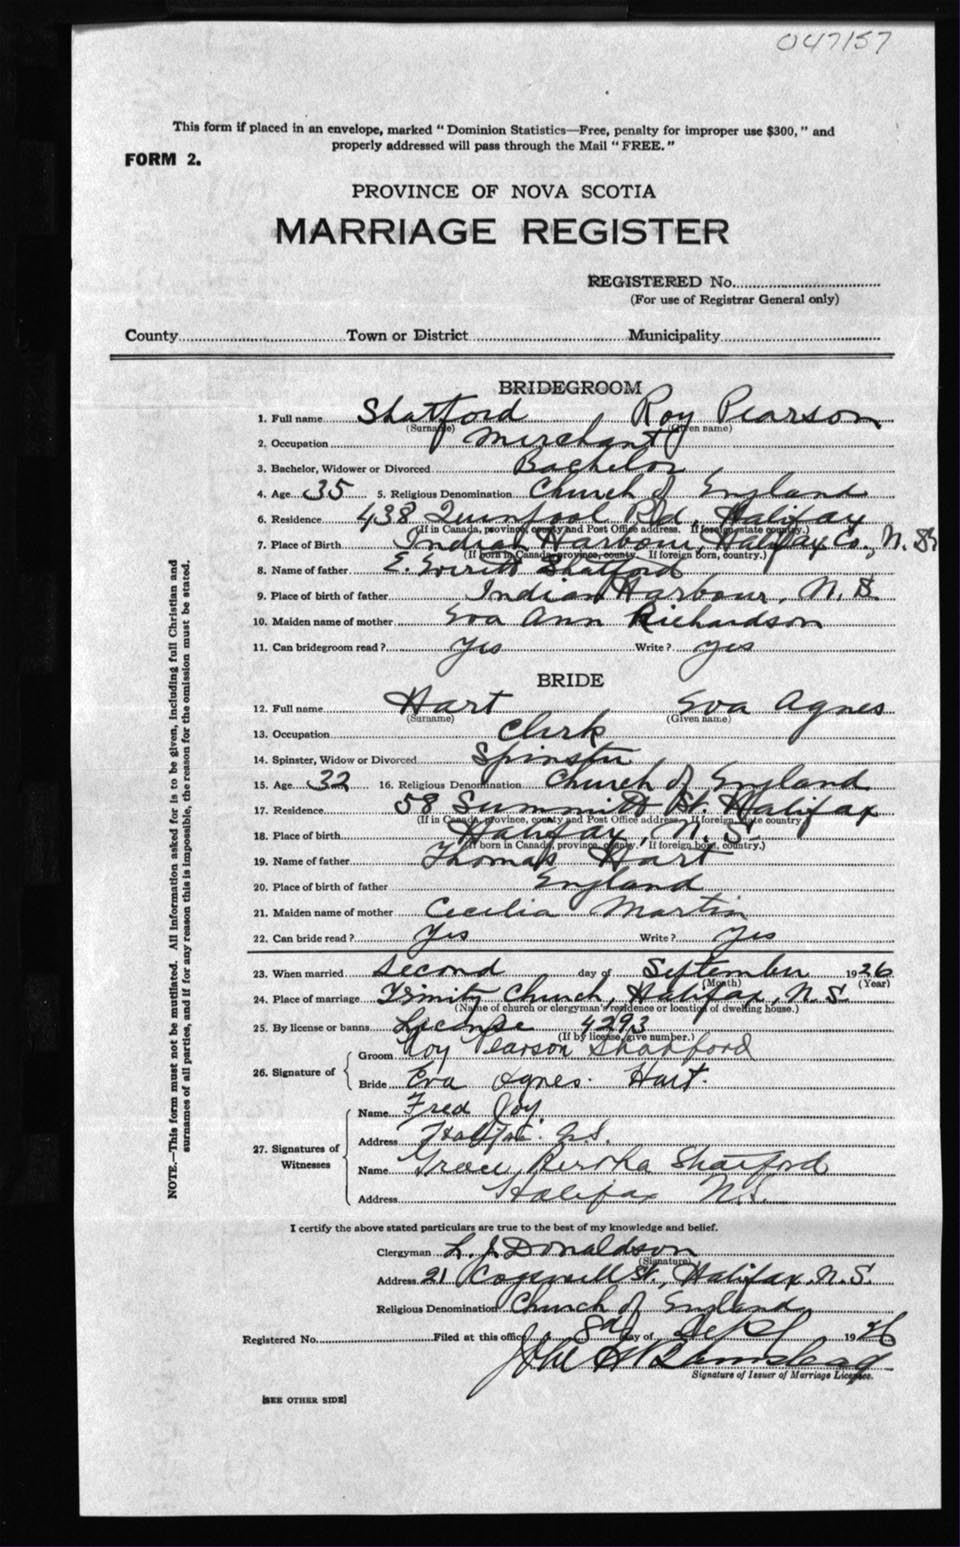 047157
This form if placed in an envelope, marked "Dominion Statistics—Free, penalty for improper use $300," and
properly addressed will pass through the Mail "FREE."
FORM 2.
PROVINCE OF NOVA SCOTIA
MARRIAGE REGISTER
REGISTERED No.
(For use of Registrar General only)
County Town or District Municipality
BRIDEGROOM
1. Full name Shatford Roy Pearson
(Surname) (Given name)
2. Occupation Merchant
3. Bachelor, Widower or Divorced Bachelor
4. Age 35 5. Religious Denomination Church of England
6. Residence 438 Quinpool Rd Halifax
(If in Canada, province, county and Post Office address. If foreign state country.)
7. Place of Birth Indian Harbour, Halifax Co., N. S.
(If born in Canada, province, county. If foreign born, country.)
8. Name of father E. Everitt Shatford
9. Place of birth of father Indian Harbour, N. S.
10. Maiden name of mother Eva Ann Richardson
11. Can bridegroom read? yes Write? yes
BRIDE
12. Full name Hart Eva Agnes
(Surname) (Given name)
13. Occupation Clerk
14. Spinster, Widow or Divorced Spinster
15. Age 32 16. Religious Denomination Church of England
17. Residence 58 Summitt St. Halifax
(If in Canada, province, county and Post Office address. If foreign, state country)
18. Place of birth Halifax, N. S.
(If born in Canada, province, county. If foreign born, country.)
19. Name of father Thomas Hart
20. Place of birth of father England
21. Maiden name of mother Cecilia Martin
22. Can bride read? Yes Write? yes
23. When married Second day of September 1926
(Month) (Year)
24. Place of marriage Trinity Church, Halifax, N.S.
(Name of church or clergyman's residence or location of dwelling house.)
25. By license or banns License 4293
(If by license, give number.)
26. Signature of Groom Roy Pearson Shatford
Bride Eva Agnes Hart.
27. Signatures of Witnesses
Name Fred Joy
Address Halifax N.S.
Name Grace Bertha Shatford
Address Halifax N.S.
I certify the above stated particulars are true to the best of my knowledge and belief.
Clergyman L. J. Donaldson
(Signature)
Address 21 Cogswell St., Halifax. N.S.
Religious Denomination Church of England
Registered No. Filed at this office 8th day of Sept 1926
Signature of Issuer of Marriage Licenses.
[SEE OTHER SIDE]
NOTE.—This form must not be mutilated. All information asked for is to be given, including full Christian and
surnames of all parties, and if for any reason this is impossible, the reason for the omission must be stated.